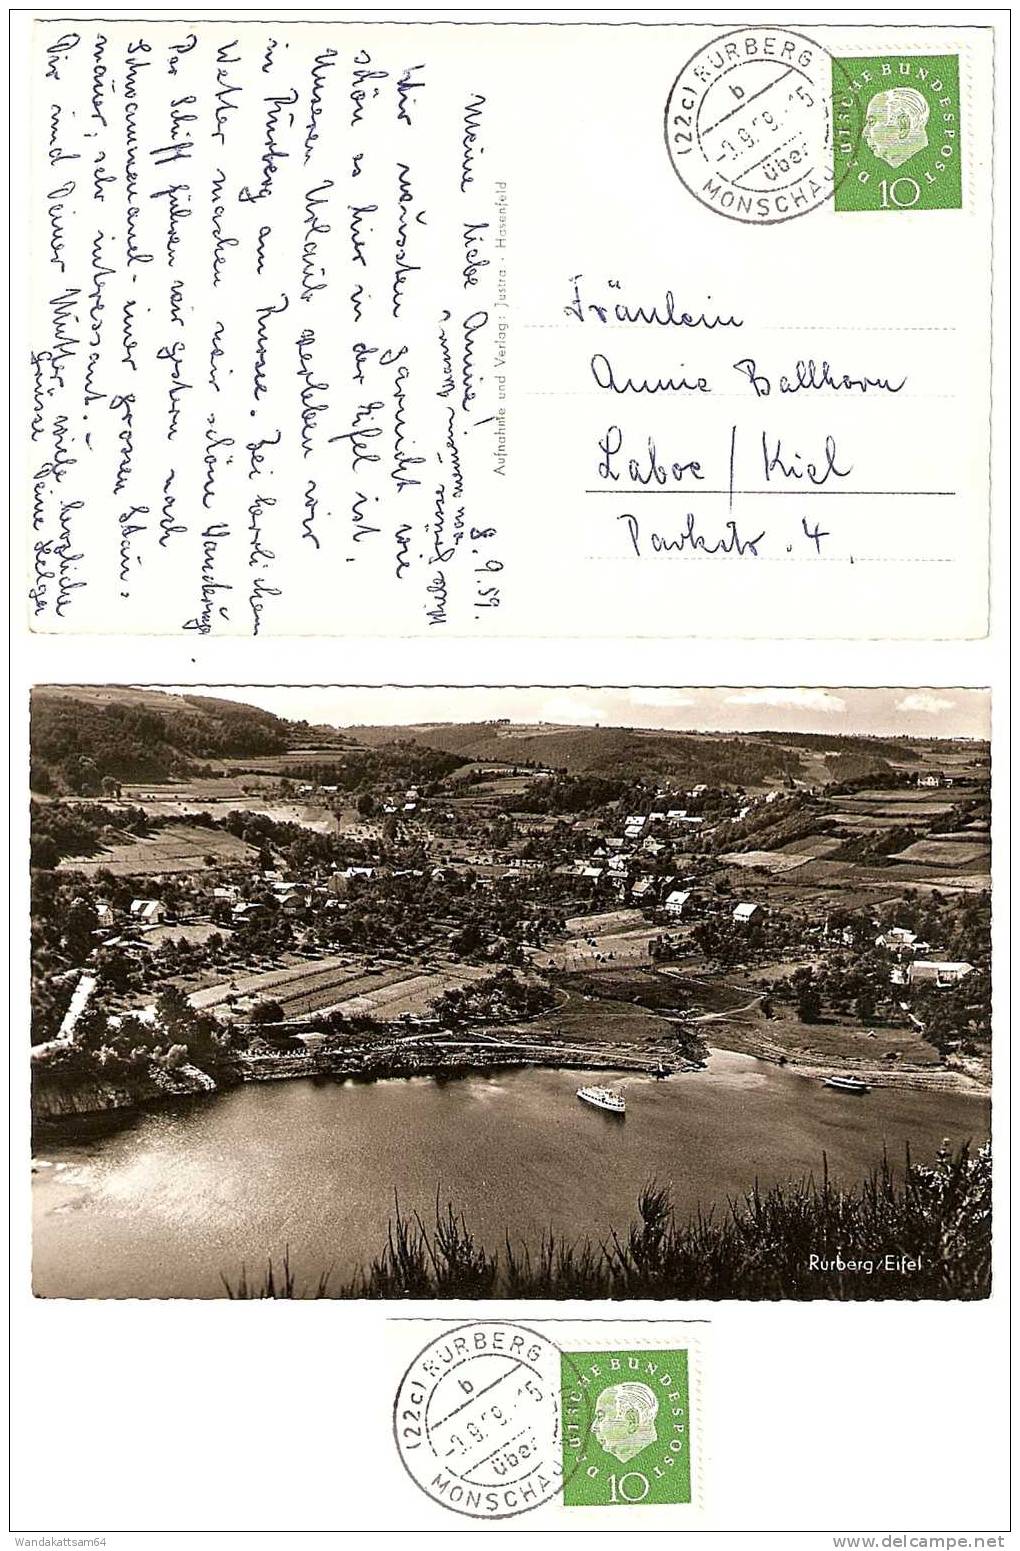 (22c) RURBERG
b
-9.9.59.-15
über
MONSCHAU
DEUTSCHE BUNDESPOST
10
Fräulein
Annie Ballhorn
Laboe / Kiel
Parkstr. 4
Aufnahme und Verlag: Justra · Hasenfeld
8.9.59.
Meine liebe Annie!
Wir wussten garnicht wie
schön es hier in der Eifel ist.
Unseren Urlaub verleben wir
in Rurberg am Rursee. Bei herrlichem
Wetter machen wir schöne Wanderungen
Per Schiff fuhren wir gestern nach
Schwammenauel - einer grossen Stau-
mauer, sehr interessant. -
Dir und Deiner Mutter viele herzliche
Grüsse Deine Helga
Rurberg/Eifel
(22c) RURBERG
b
-9.9.59.-15
über
MONSCHAU
DEUTSCHE BUNDESPOST
10
Wandakattsam64
www.delcampe.net